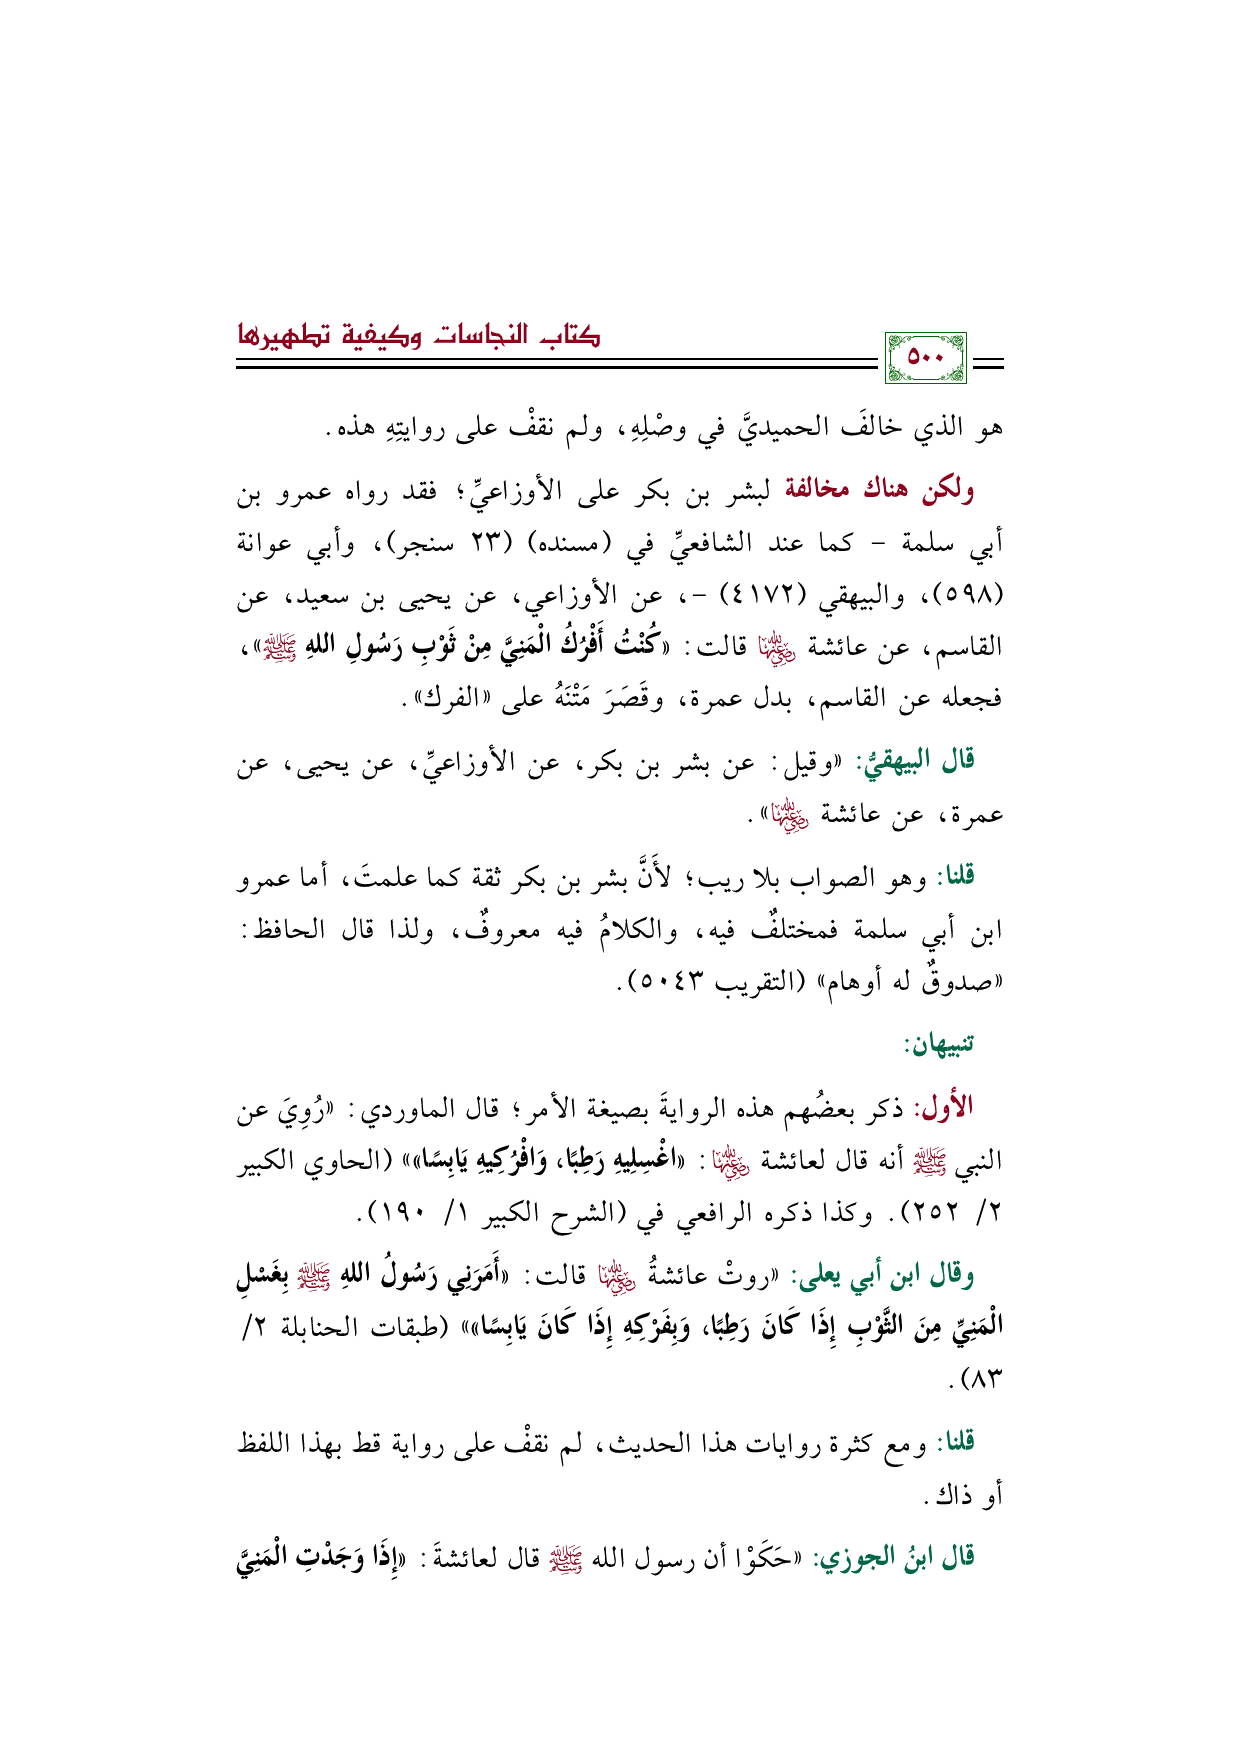 كتاب النجاسات وكيفية تطهيرها
٥٠٠
هو الذي خالفَ الحميديَّ في وصْلِهِ، ولم نقفْ على روايتِهِ هذه.
ولكن هناك مخالفة لبشر بن بكر على الأوزاعيِّ؛ فقد رواه عمرو بن
أبي سلمة - كما عند الشافعيِّ في (مسنده) (٢٣ سنجر)، وأبي عوانة
(٥٩٨)، والبيهقي (٤١٧٢) -، عن الأوزاعي، عن يحيى بن سعيد، عن
القاسم، عن عائشة رضي الله عنها قالت: «كُنْتُ أَفْرُكُ الْمَنِيَّ مِنْ ثَوْبِ رَسُولِ اللهِ ﷺ»،
فجعله عن القاسم، بدل عمرة، وقَصَرَ مَتْنَهُ على «الفرك».
قال البيهقيُّ: «وقيل: عن بشر بن بكر، عن الأوزاعيِّ، عن يحيى، عن
عمرة، عن عائشة رضي الله عنها».
قلنا: وهو الصواب بلا ريب؛ لأَنَّ بشر بن بكر ثقة كما علمتَ، أما عمرو
ابن أبي سلمة فمختلفٌ فيه، والكلامُ فيه معروفٌ، ولذا قال الحافظ:
«صدوقٌ له أوهام» (التقريب ٥٠٤٣).
تنبيهان:
الأول: ذكر بعضُهم هذه الروايةَ بصيغة الأمر؛ قال الماوردي: «رُوِيَ عن
النبي ﷺ أنه قال لعائشة رضي الله عنها: «اغْسِلِيهِ رَطِبًا، وَافْرُكِيهِ يَابِسًا»» (الحاوي الكبير
٢/ ٢٥٢). وكذا ذكره الرافعي في (الشرح الكبير ١/ ١٩٠).
وقال ابن أبي يعلى: «روتْ عائشةُ رضي الله عنها قالت: «أَمَرَنِي رَسُولُ اللهِ ﷺ بِغَسْلِ
الْمَنِيِّ مِنَ الثَّوْبِ إِذَا كَانَ رَطِبًا، وَبِفَرْكِهِ إِذَا كَانَ يَابِسًا»» (طبقات الحنابلة ٢/
٨٣).
قلنا: ومع كثرة روايات هذا الحديث، لم نقفْ على رواية قط بهذا اللفظ
أو ذاك.
قال ابنُ الجوزي: «حَكَوْا أن رسول الله ﷺ قال لعائشةَ: «إِذَا وَجَدْتِ الْمَنِيَّ